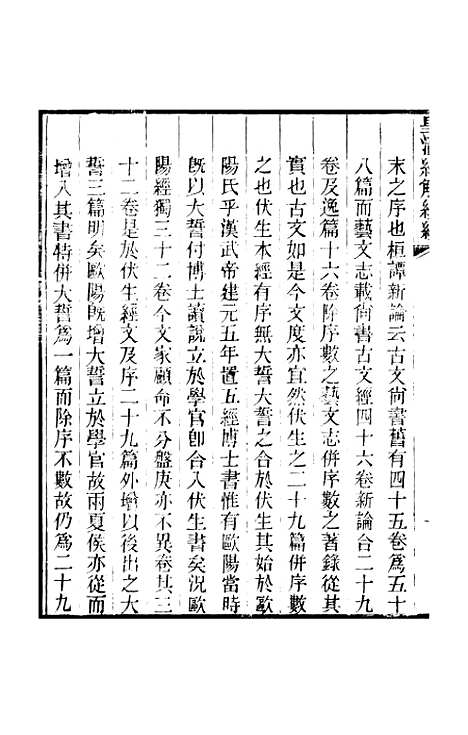 皇清經解續編
末之序也桓譚新論云古文尙書舊有四十五卷爲五十
八篇而藝文志載尙書古文經四十六卷新論合二十九
卷及逸篇十六卷除序數之藝文志併序數之著錄從其
實也古文如是今文度亦宜然伏生之二十九篇併序數
之也伏生本經有序無大誓大誓之合於伏生其始於歐
陽氏乎漢武帝建元五年置五經博士書惟有歐陽當時
旣以大誓付博士讀說立於學官卽合入伏生書矣況歐
陽經獨三十二卷今文家顧命不分盤庚亦不異卷其三
十二卷是於伏生經文及序二十九篇外增以後出之大
誓三篇明矣歐陽旣增大誓立於學官故兩夏侯亦從而
增入其書特併大誓爲一篇而除序不數故仍爲二十九